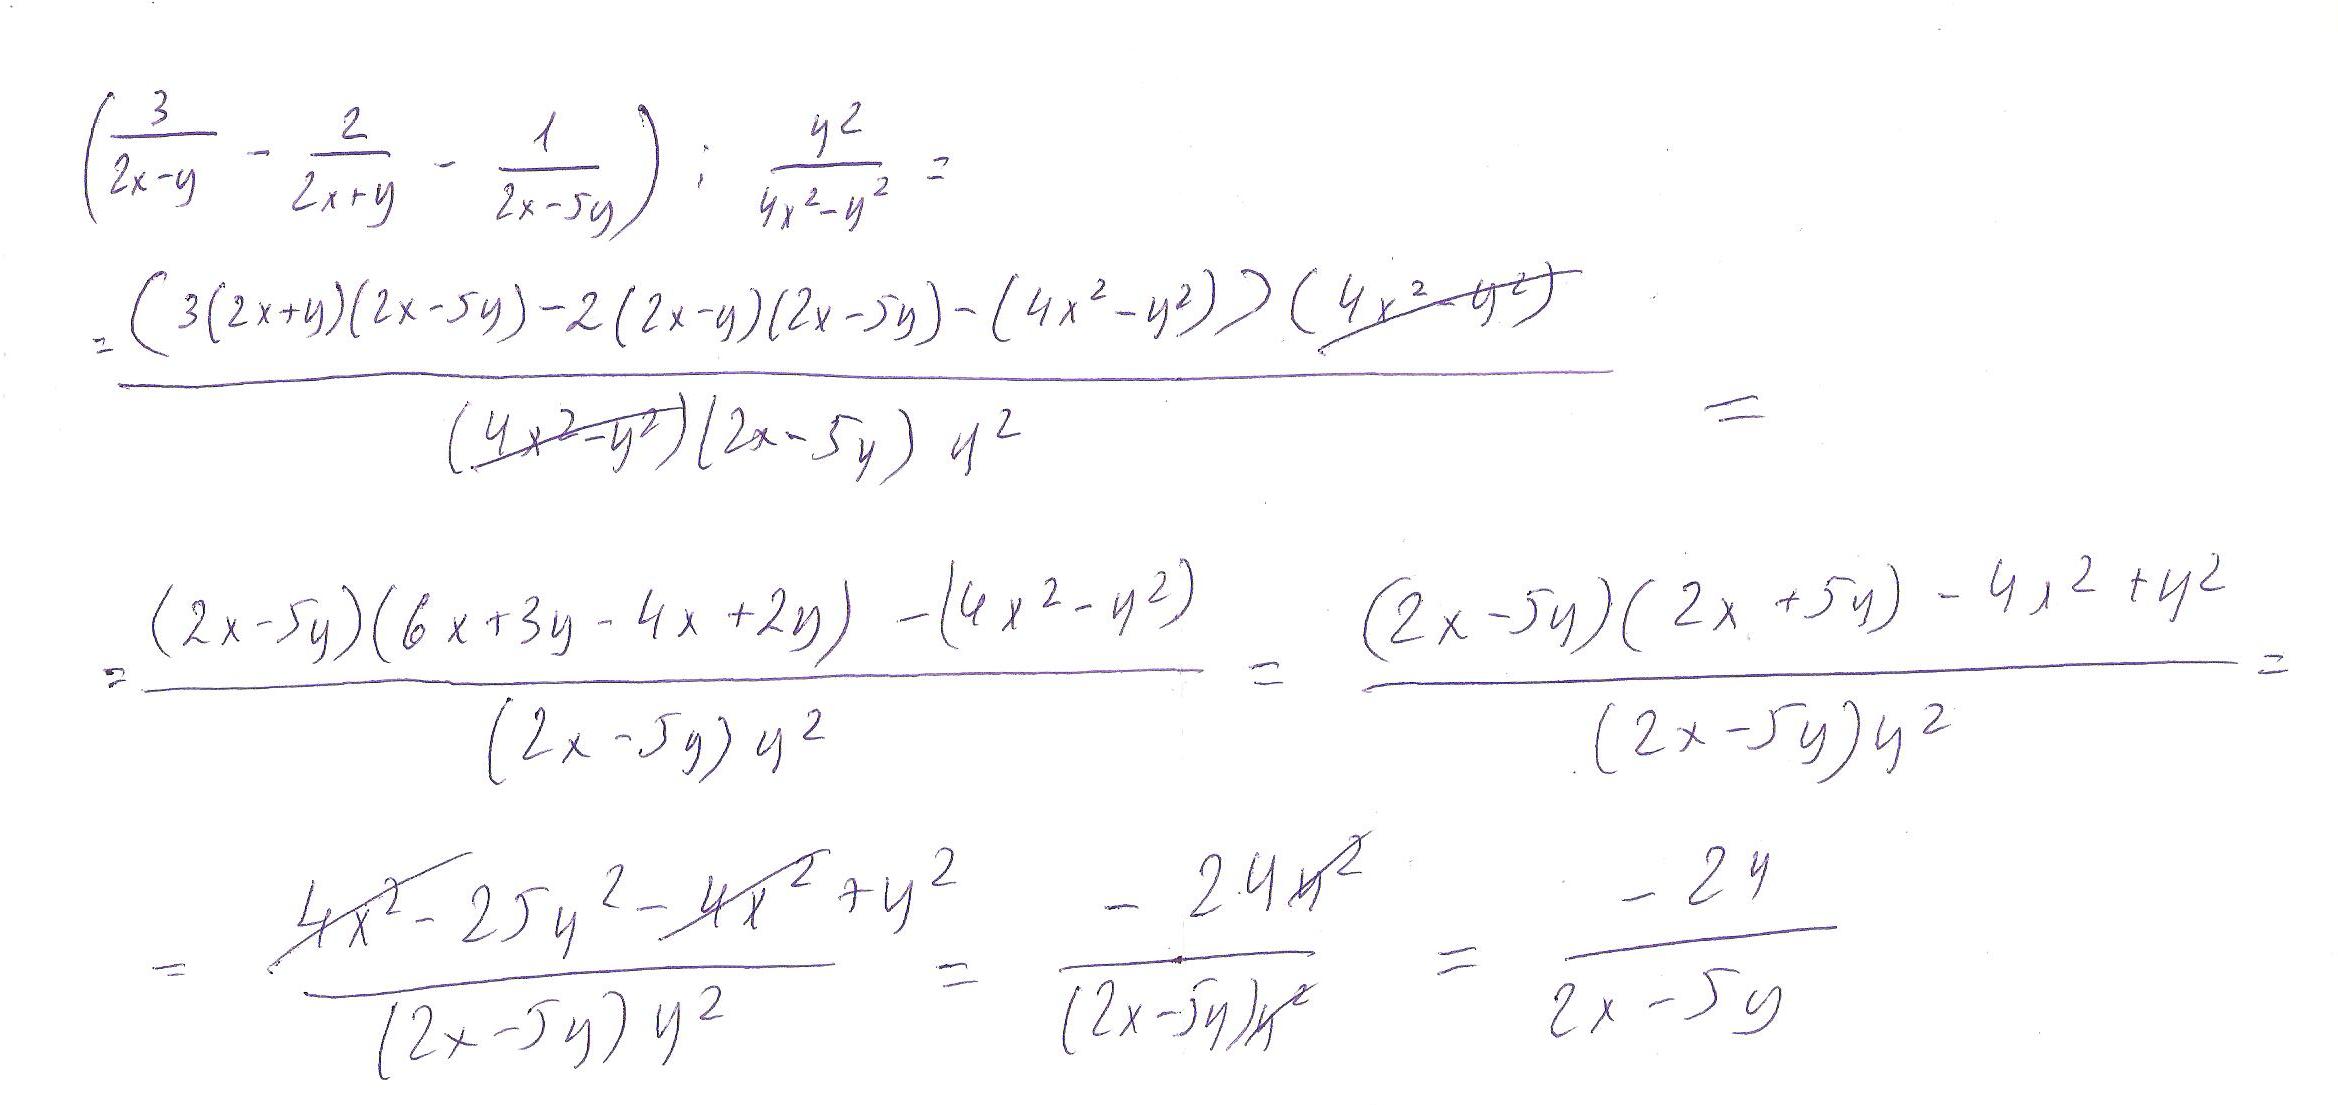 (3/(2x-y) - 2/(2x+y) - 1/(2x-5y)) : y²/(4x²-y²) =
= (3(2x+y)(2x-5y)-2(2x-y)(2x-5y)-(4x²-y²))(4x²-y²) / (4x²-y²)(2x-5y) y² =
= (2x-5y)(6x+3y-4x+2y) -(4x²-y²) / (2x-5y) y² = (2x-5y)(2x+5y) - 4x²+y² / (2x-5y)y² =
= 4x²-25y²-4x²+y² / (2x-5y) y² = -24y² / (2x-5y)y² = -24 / 2x-5y